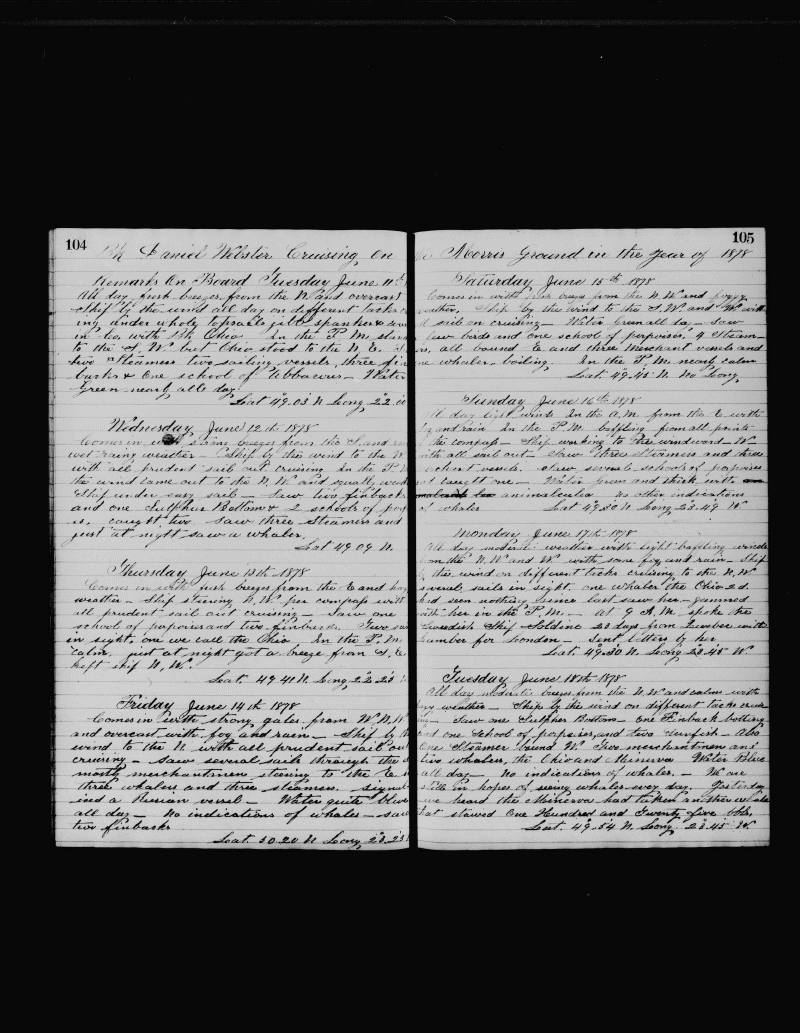 104
Bk Daniel Webster Cruising On
Remarks On Board Tuesday June 11th
All day fresh breezes from the N and overcast
Ship by the wind all day on different tacks
ing under whole topsails jib & spanker
in Co. with Bk Ohio In the P.M.
to the S. W. but Ohio stood to the N. E.
two Steamers two sailing vessels, three fin
backs & One school of Water
Green nearly all day
Lat 49.03 N Long 22
Wednesday June 12th 1878
Comes in with strong breezes from the S. and
wet rainy weather - Ship by the wind to the W.
with all prudent sail out cruising In the P.M
the wind came out to the N. W and squally
Ship under easy sail - Saw two finback
and one Sulpher Bottom & 2 schools of
caught two saw three steamers and
just at night saw a whaler.
Lat 49 09 N.
Thursday June 13th 1878
Comes in with fresh breezes from the E and
weather - Ship steering N. W per compass with
all prudent sail out cruising - Saw one
school of popoises and two finbacks. Two
in sight, one we call the Ohio In the P. M
calm, just at night got a breeze from S. E
kept ship N. W.
Lat. 49 41 N. Long 22.25
Friday June 14th 1878
Comes in with strong gales from W.N.W
and overcast with fog and rain - Ship by
wind to the N with all prudent sail out
cruising - Saw several sails through the
mostly merchantmen steering to the E
three whalers and three steamers. signal
ised a Russian vessel - Water quite blue
all day - No indications of whales - saw
two finbacks
Lat. 50.20 N Long 23.23
105
Morris Ground in the Year of 1878
Saturday June 15th 1878
Comes in with fresh breezes from the N. W and foggy
weather, Ship by the wind to the S. W and W. with
sail on cruising - Water Green all day - saw
few birds and one school of porpoises, 9 Steam-
ers, all bound E and three Merchant vessels and
one whaler, boiling. In the P.M. nearly calm
Lat. 49.45 N. No Long
Sunday June 16th 1878
All day light winds In the A.M. from the E with
fog and rain In the P.M. baffling from all points
the compass - Ship working to the windward - W
with all sail out - Saw three Steamers and three
merchant vessels. Saw several schools of porpoises
caught one - Water green and thick with
animalculea no other indications
of whales Lat 49.50 N Long 23.49 W.
Monday June 17th 1878
All day moderate weather with light baffling winds
from the N. W and W with some fog and rain - Ship
by the wind on different tacks cruising to the N. W
several sails in sight. one whaler the Ohio 2d.
had seen nothing since last saw her - gammed
with her in the P.M. - At 9 A.M. spoke the
Swedish Ship Soldine 23 days from Quebec with
lumber for London - Sent letters by her
Lat. 49.50 N Long 23.45 W.
Tuesday June 18th 1878
All day moderate breezes from the N. W and calms with
foggy weather - Ship by the wind on different tacks cruis
ing - Saw one Sulpher Bottom - one Finback bolting
and one School of porpoises, and two Sunfish - Also
one Steamer bound W. Two merchantmen and
two whalers, the Ohio and Minerva Water Blue
all day - No indications of whales. - We are
still in hopes of seeing whales every day. Yesterday
we heard the Minerva had taken another whale
that stowed One Hundred and Twenty five bbls,
Lat. 49.54 N. Long. 23.45 W.